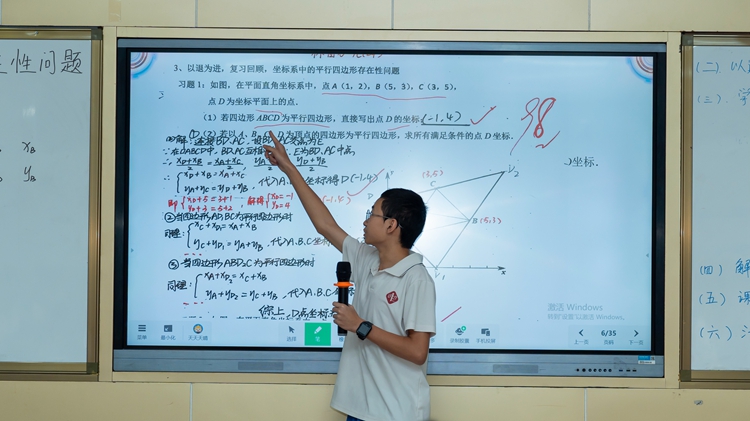 性问题
x_B
y_B
3、以退为进,复习回顾,坐标系中的平行四边形存在性问题
习题1:如图,在平面直角坐标系中,点A(1,2),B(5,3),C(3,5),
点D为坐标平面上的点.
(1)若四边形ABCD为平行四边形,直接写出点D的坐标 (-1,4)
98
D为顶点的四边形为平行四边形,求所有满足条件的点D坐标.
)坐标.
①解:连接BD、AC,
∵在▱ABCD中,BD、AC互相 E为BD、AC中点
∴ (x_D+x_B)/2 = (x_A+x_C)/2,
(y_D+y_B)/2
{x_D+x_B=x_A+x_C
y_A+y_C=y_D+y_B, 代入A.B 坐标得D(-1,4)
即 {x_D+5=3+1
y_D+3=5+2, 解得 {x_D=-1
y_D=4
(-1,4)
②当四边形AD₁BC为平行四边形时
同理: {x_C+x_D₁=x_A+x_B
y_C+y_D₁=y_A+y_B, 代入A.B.C坐
③当四边形ABD₂C为平行四边形时
同理: {x_A+x_D₂=x_C+x_B
y_A+y_D₂=y_C+y_B, 代入A.B.C坐标
综上,D点坐标
(3,5)
C
B(5,3)
x
激活 Windows
转到"设置"以激活 Windows
菜单
最小化
天天天晴
选择
笔
手机投屏
6/35
上一页
下一页
Windows
(二)以
(三)学
(四)解
(五)课
(六)